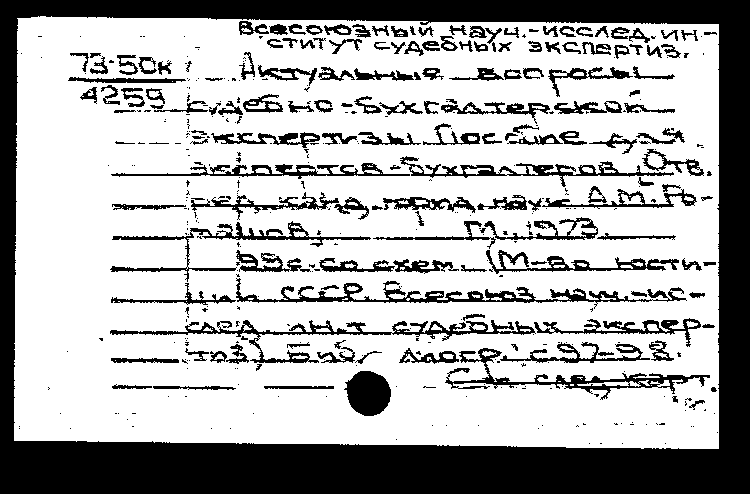 Всесоюзный науч.-исслед. ин-
ститут судебных экспертиз.
73-50к Актуальные вопросы
4259 судебно-бухгалтерской
экспертизы Пособие для
экспертов-бухгалтеров. Отв.
ред. канд. юрид. наук А.М. Ро-
машов. М., 1973.
99 с. со схем. (М-во юсти-
ции СССР. Всесоюз науч.-ис-
след. ин-т судебных экспер-
тиз). Библиогр.: с. 97-98.
См. след. карт.